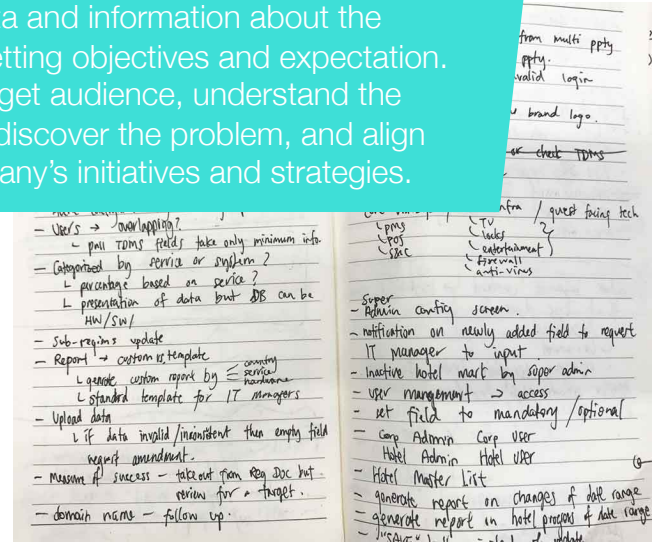 a and information about the
etting objectives and expectation.
get audience, understand the
discover the problem, and align
any's initiatives and strategies.
- Users → overlapping?
└ pull TDMS fields take only minimum info.
- Categorized by service or system?
└ percentage based on service?
└ presentation of data but DB can be
HW/SW/
- Sub-regions update
- Report → custom vs template
└ generate custom report by country
service
hardware
└ standard template for IT managers
- Upload data
└ if data invalid/inconsistent then empty field
request amendment.
- Measure of success - take out from Req Doc but
review for a target.
- domain name - follow up.
from multi ppty
ppty.
valid login
brand logo.
or check TDMS
infra / guest facing tech
└ PMS
└ POS
└ S&C
└ TV
└ locks
└ entertainment
└ firewall
└ anti-virus
Super
- Admin config screen.
- notification on newly added field to request
IT manager to input
- Inactive hotel mark by super admin
- user management → access
- set field to mandatory/optional
- Corp Admin Corp User
Hotel Admin Hotel User
- Hotel Master List
- generate report on changes of date range
- generate report on hotel progress of date range
- "SAVE" update